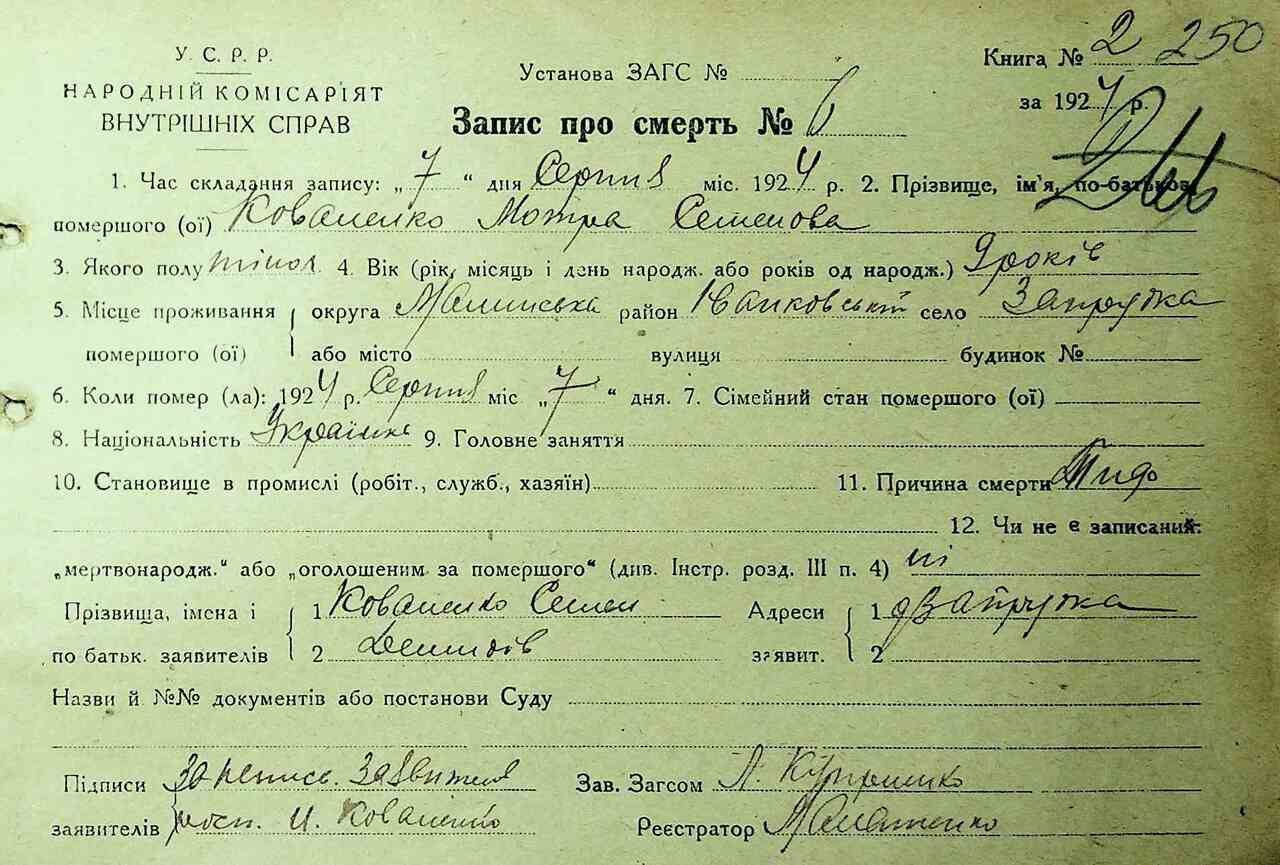 У. С. Р. Р.
НАРОДНІЙ КОМІСАРІЯТ
ВНУТРІШНІХ СПРАВ
Установа ЗАГС №
Запис про смерть № 6
Книга № 2 250
за 1924 р.
1. Час складання запису: „7“ дня Серпня міс. 1924 р. 2. Прізвище, ім'я, по-батькові
помершого (ої) Коваленко Мотра Семенова
3. Якого полу жіноч. 4. Вік (рік, місяць і день народж. або років од народж.) 9 років
5. Місце проживання округа Малинська район Іванковський село Запрудка
помершого (ої) або місто вулиця будинок №
6. Коли помер (ла): 1924 р. Серпня міс „7“ дня. 7. Сімейний стан помершого (ої)
8. Національність Українка 9. Головне заняття
10. Становище в промислі (робіт., служб., хазяїн) 11. Причина смерти Тиф
12. Чи не є записаний:
„мертвонародж.“ або „оголошеним за помершого“ (див. Інстр. розд. III п. 4) ні
Прізвища, імена і 1 Коваленко Семен Адреси 1 Запрудка
по батьк. заявителів 2 Демидів заявит. 2
Назви й №№ документів або постанови Суду
Підписи За неписьм. Заявителя Зав. Загсом Л. Купрієнко
заявителів росп. И. Коваленко Реєстратор